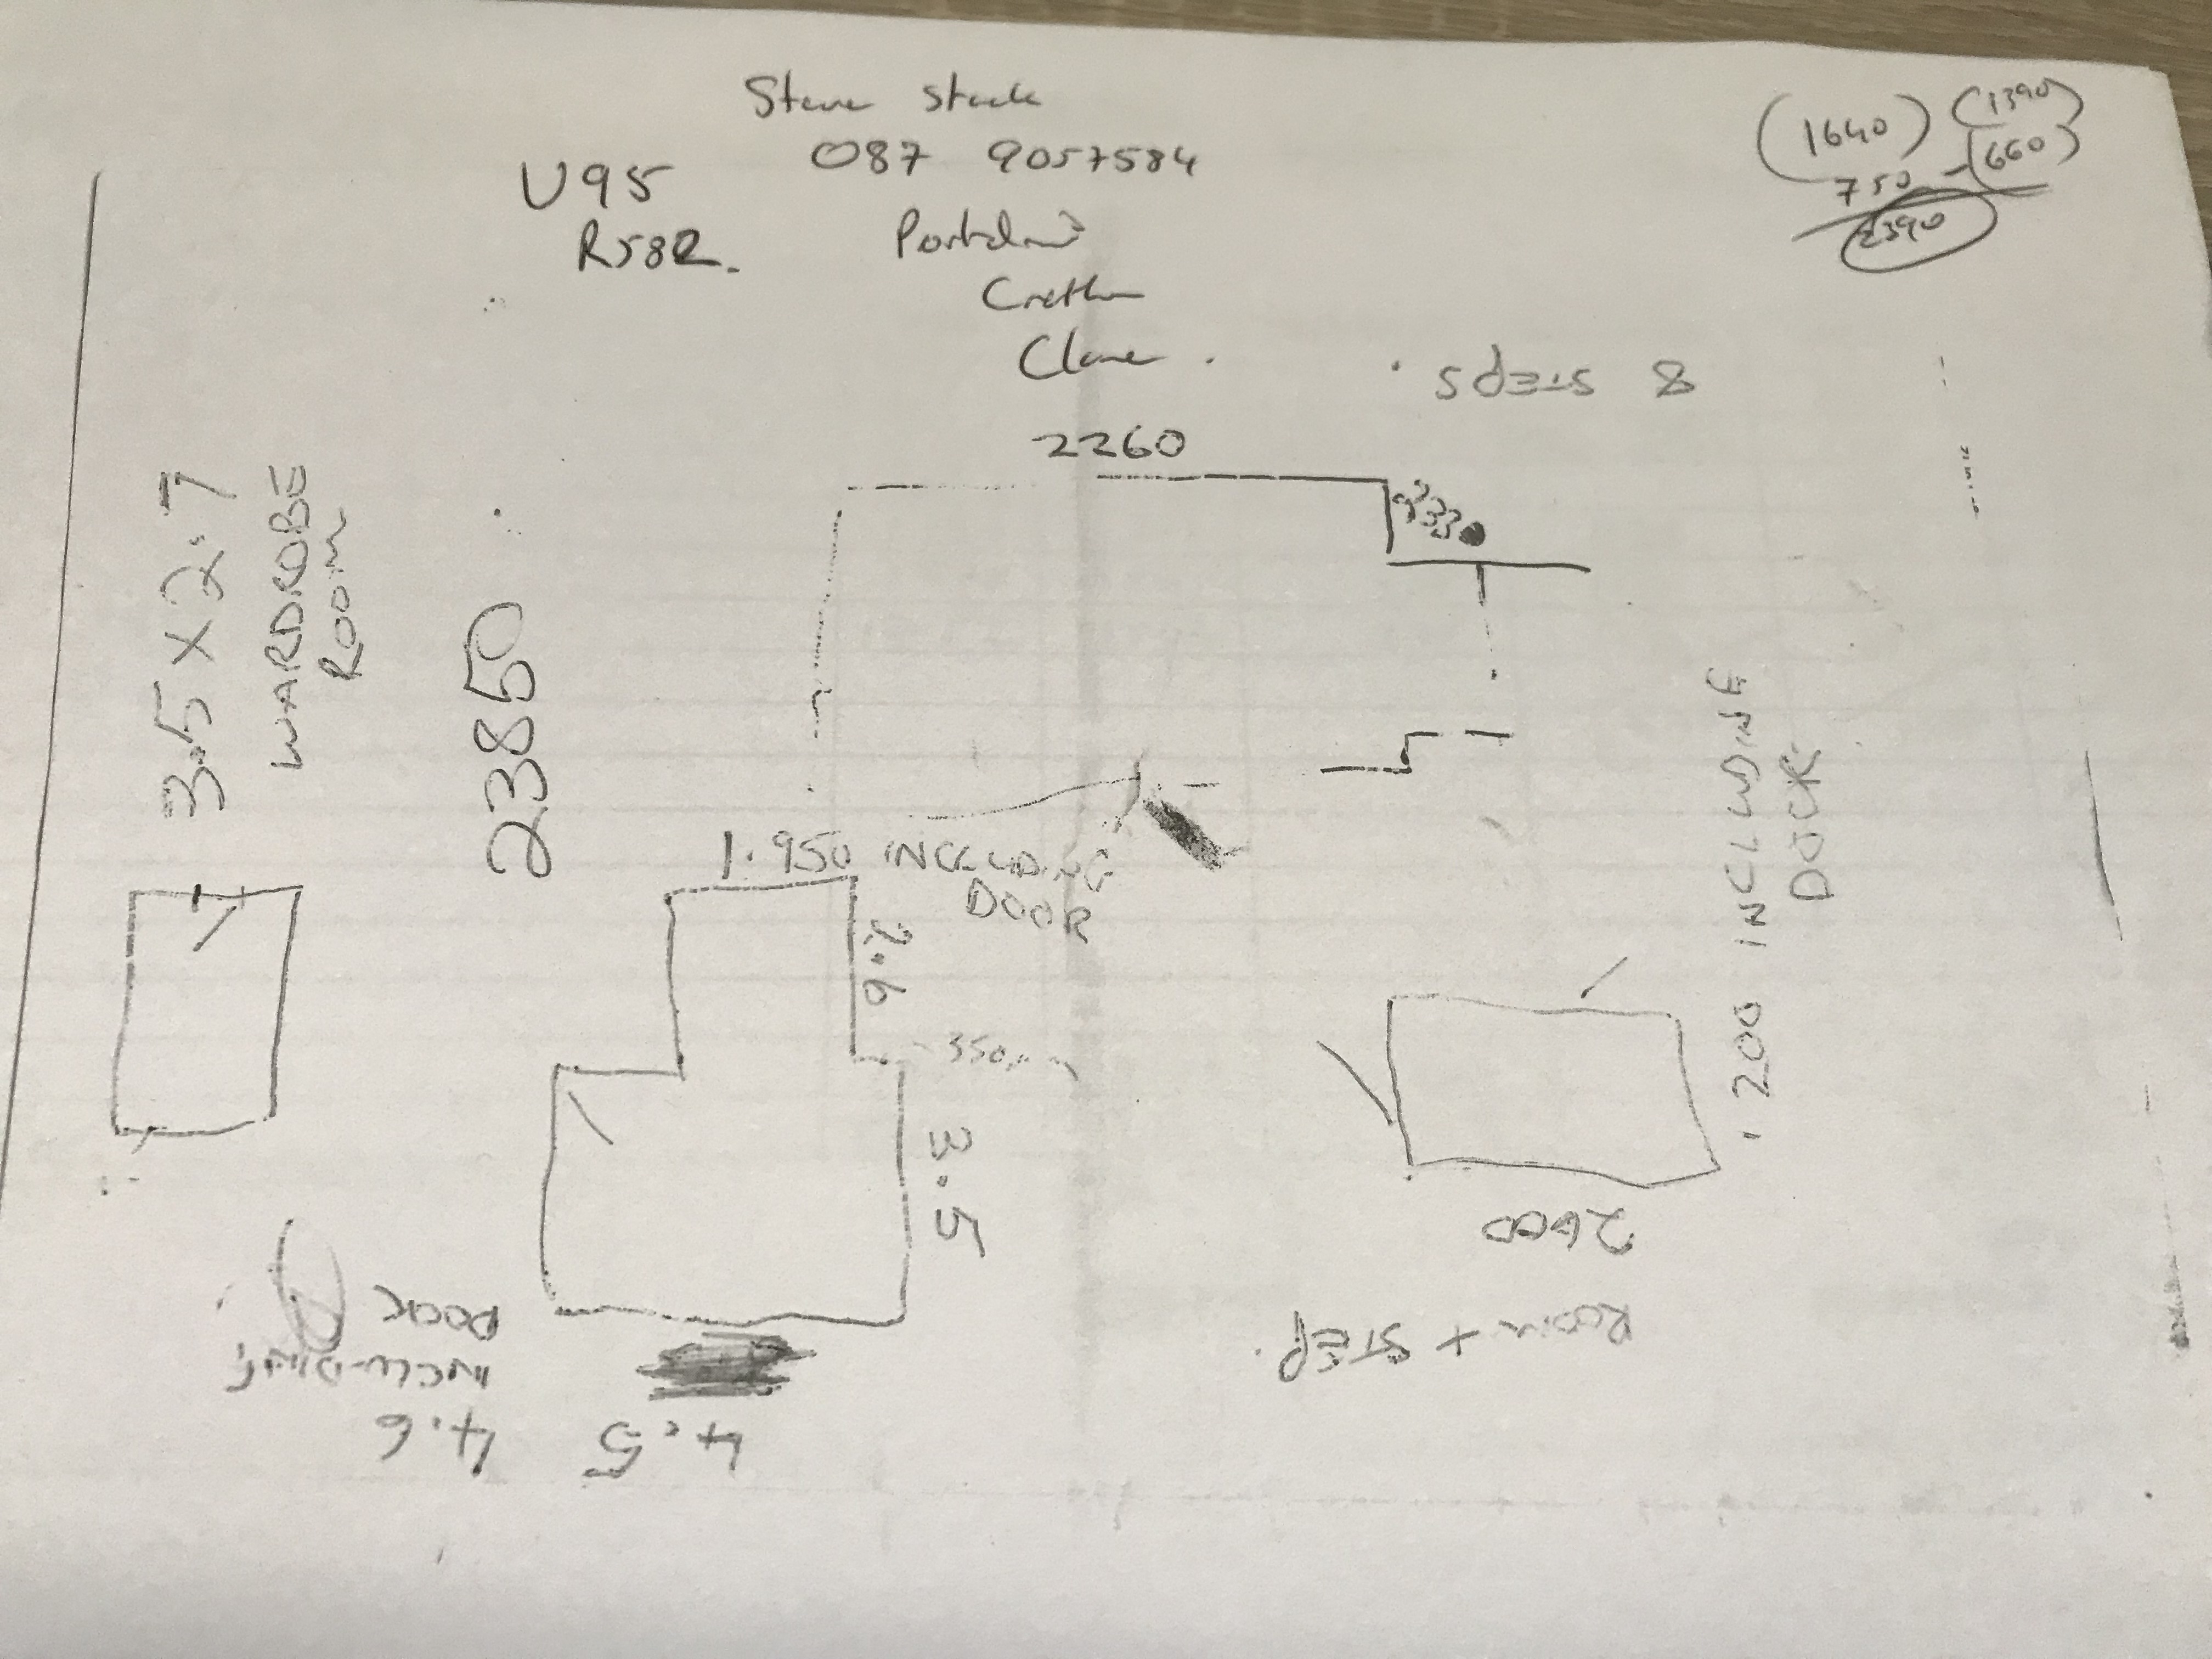 Steve Stack
087 9057584
U95
R58R.
Clare .
(1640) (1390)
750 - (660)
2390
8 STEPS .
2260
330
3.5 X 2.7
WARDROBE
ROOM
23850
1.950 INCLUDING
DOOR
2.6
350
3.5
4.5
4.6
INCLUDING
DOOR
.200 INCLUDING
DOOR
2600
ROOM + STEP.